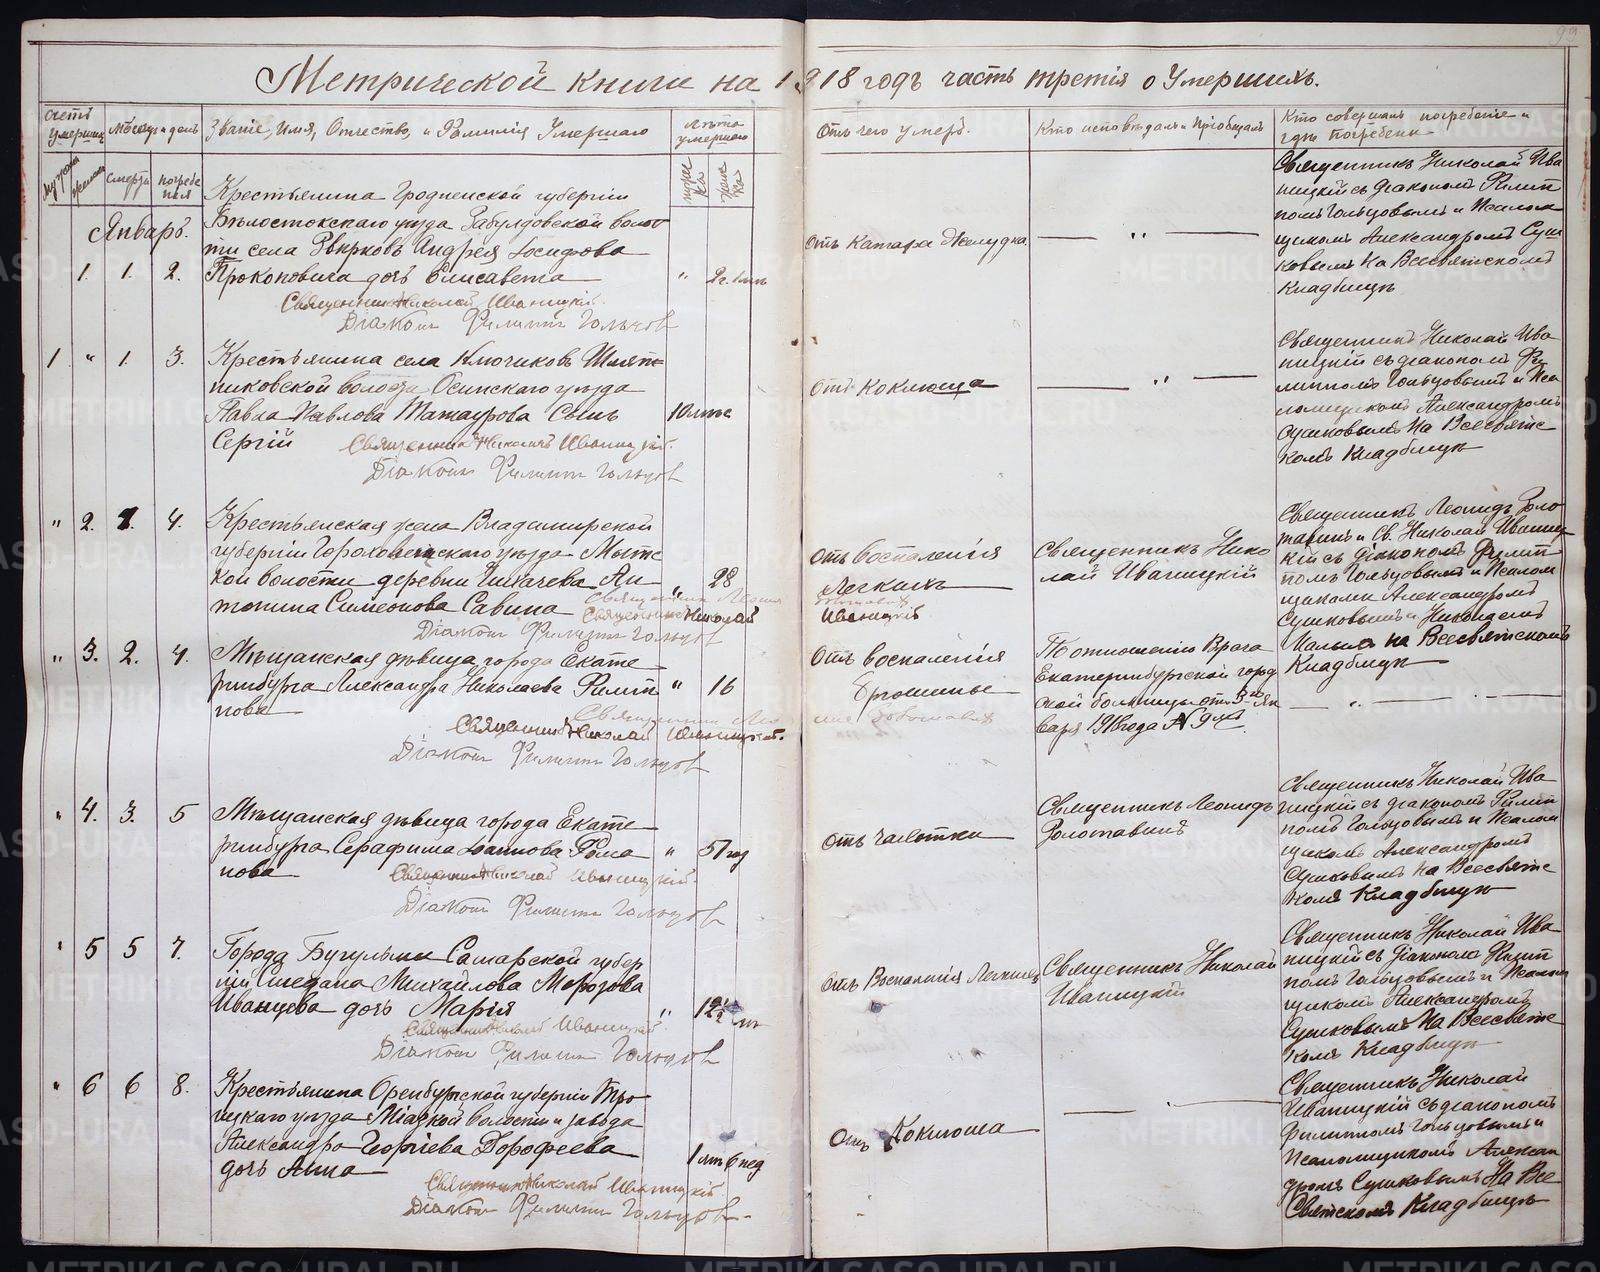 Метрической книги на 1918 годъ часть третія о Умершихъ.
93
Счетъ умершихъ
Мѣсяцъ и день
Званіе, Имя, Отчество, и Фамилія Умершаго
Лѣта умершаго
Отъ чего умеръ.
Кто исповѣдалъ и пріобщалъ
Кто совершалъ погребеніе и
гдѣ погребены
смерти
погребенія
Январь.
Крестьянина Гродненской губерніи
Бѣлостокскаго уѣзда Забулдовской волос
ти села Андрея Іосифова
1. 1. 2. Прокоповича дочь Елисавета " 2 г.
Священникъ Николай Иваницкій.
Діаконъ Филиппъ Гольцов
Отъ Катара Желудка
Священникъ Николай Ива
ницкій съ діакономъ Филип
помъ Гольцовымъ и Псалом
щикомъ Александромъ Суш
ковымъ На Всесвятскомъ
Кладбищѣ
1 " 1. 3. Крестьянина села Ключиковъ Шляп
никовской волости Осинскаго уѣзда
Павла Павлова Татаурова Сынъ 10
Сергій Священникъ Николай Иваницкій.
Діаконъ Филиппъ Гольцов
Отъ Коклюша
Священникъ Николай Ива
ницкій съ діакономъ Фи
липпомъ Гольцовымъ и Пса
ломщикомъ Александромъ
Сушковымъ На Всесвятс
комъ Кладбищѣ
" 2. 4. Крестьянская жена Владимірской
губерніи Гороховецкаго уѣзда Мытс
кой волости деревни Ан
тонина Симеонова Савина " 28
Священникъ Николай
Иваницкій
Діаконъ Филиппъ Гольцов
Отъ воспаленія
Легкихъ
Священникъ Нико
лай Иваницкій
Священникъ Леонидъ
и Св. Николай Иваниц
кій съ діакономъ Филип
помъ Гольцовымъ и Псалом
щиками Александромъ
Сушковымъ и Николаемъ
на Всесвятскомъ
Кладбищѣ
" 3. 2. 4. Мѣщанская дѣвица города Екате
ринбурга Александра Николаева Филип " 16
пова
Священникъ Николай Иваницкій.
Діаконъ Филиппъ Гольцов
Отъ воспаленія
Брюшины
По отношенію Врача
Екатеринбургской город
ской больницы отъ 3-го Ян
варя 1918 года № 9
" 4. 3. 5 Мѣщанская дѣвица города Екате
ринбурга Серафима Іоаннова Рома " 57 год
нова
Священникъ Николай Иваницкій.
Діаконъ Филиппъ Гольцов
Отъ чахотки
Священникъ Леонидъ
Священникъ Николай Ива
ницкій съ діакономъ Филип
помъ Гольцовымъ и Псалом
щикомъ Александромъ
Сушковымъ На Всесвятс
комъ Кладбищѣ
" 5 5 7. Города Бугульмы Самарской губер
ніи Михайлова Морозова
Иванцева дочь Марія " 12
Священникъ Николай Иваницкій
Діаконъ Филиппъ Гольцов
Отъ Воспаленія Легкихъ
Священникъ Николай
Иваницкій
Священникъ Николай Ива
ницкій съ діакономъ Филип
помъ Гольцовымъ и Псалом
щикомъ Александромъ
Сушковымъ На Всесвятс
комъ Кладбищѣ
" 6 6 8. Крестьянина Оренбургской губерніи Тро
ицкаго уѣзда Міасской волости и завода
Александра Георгіева Дорофеева
дочь Анна 1 6 нед
Священникъ Николай Иваницкій
Діаконъ Филиппъ Гольцов.
Отъ Коклюша
Священникъ Николай
Иваницкій съ діакономъ
Филиппомъ Гольцовымъ и
Псаломщикомъ Алексан
дромъ Сушковымъ На Все
Святскомъ Кладбищѣ
METRIKI.GASO-URAL.RU